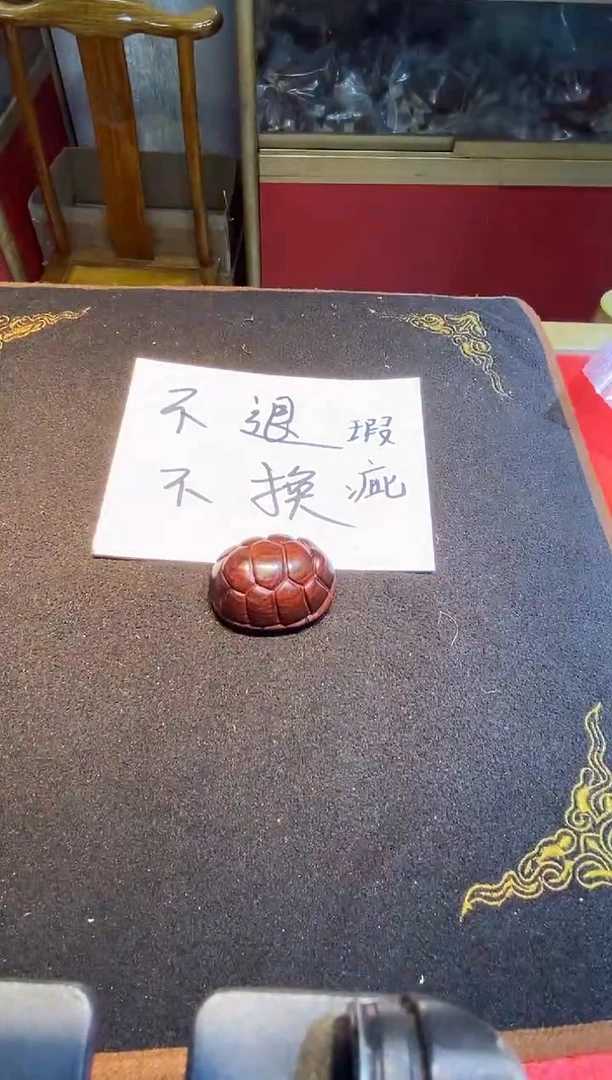 不退 瑕
不换 疵